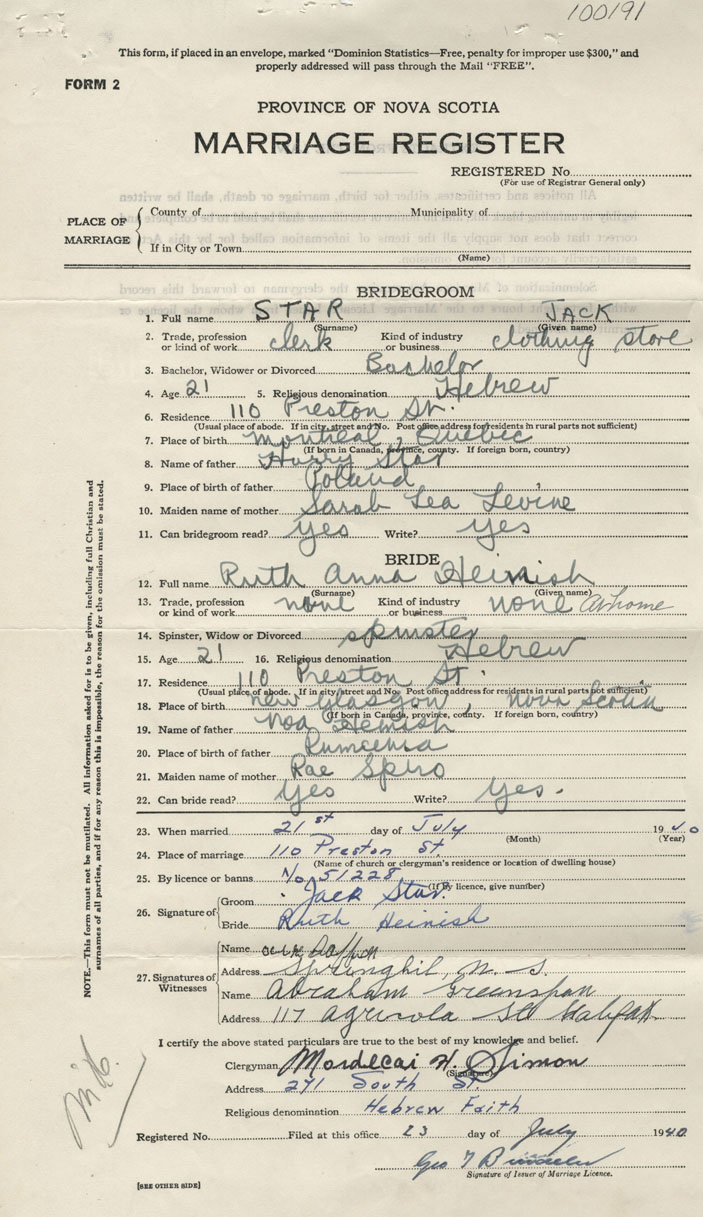 100191
This form, if placed in an envelope, marked "Dominion Statistics—Free, penalty for improper use $300," and
properly addressed will pass through the Mail "FREE".
FORM 2
PROVINCE OF NOVA SCOTIA
MARRIAGE REGISTER
REGISTERED No.
(For use of Registrar General only)
PLACE OF MARRIAGE
County of Municipality of
If in City or Town
(Name)
BRIDEGROOM
1. Full name STAR JACK
(Surname) (Given name)
2. Trade, profession or kind of work clerk Kind of industry or business clothing store
3. Bachelor, Widower or Divorced Bachelor
4. Age 21 5. Religious denomination Hebrew
6. Residence 110 Preston St.
(Usual place of abode. If in city, street and No. Post office address for residents in rural parts not sufficient)
7. Place of birth Montreal, Quebec
(If born in Canada, province, county. If foreign born, country)
8. Name of father Harry Star
9. Place of birth of father Poland
10. Maiden name of mother Sarah Lea Levine
11. Can bridegroom read? yes Write? yes
BRIDE
12. Full name Ruth Anna Heinish
(Surname) (Given name)
13. Trade, profession or kind of work none Kind of industry or business none At home
14. Spinster, Widow or Divorced spinster
15. Age 21 16. Religious denomination Hebrew
17. Residence 110 Preston St.
(Usual place of abode. If in city street and No. Post office address for residents in rural parts not sufficient)
18. Place of birth New Glasgow, Nova Scotia
(If born in Canada, province, county. If foreign born, country)
19. Name of father Noa Heinish
20. Place of birth of father Rumania
21. Maiden name of mother Rae Spiro
22. Can bride read? yes Write? yes.
23. When married 21st day of July 1940
(Month) (Year)
24. Place of marriage 110 Preston St.
(Name of church or clergyman's residence or location of dwelling house)
25. By licence or banns No 51228
(If By licence, give number)
26. Signature of
Groom Jack Star.
Bride Ruth Heinish
27. Signatures of Witnesses
Name
Address Springhil, N. S.
Name Abraham Greenspan
Address 117 Agricola St Halifax
I certify the above stated particulars are true to the best of my knowledge and belief.
Clergyman Mordecai H. Simon
(Signature)
Address 271 South St.
Religious denomination Hebrew Faith
Registered No. Filed at this office 23 day of July 1940
Geo T
Signature of Issuer of Marriage Licence.
[SEE OTHER SIDE]
NOTE.—This form must not be mutilated. All information asked for is to be given, including full Christian and
surnames of all parties, and if for any reason this is impossible, the reason for the omission must be stated.